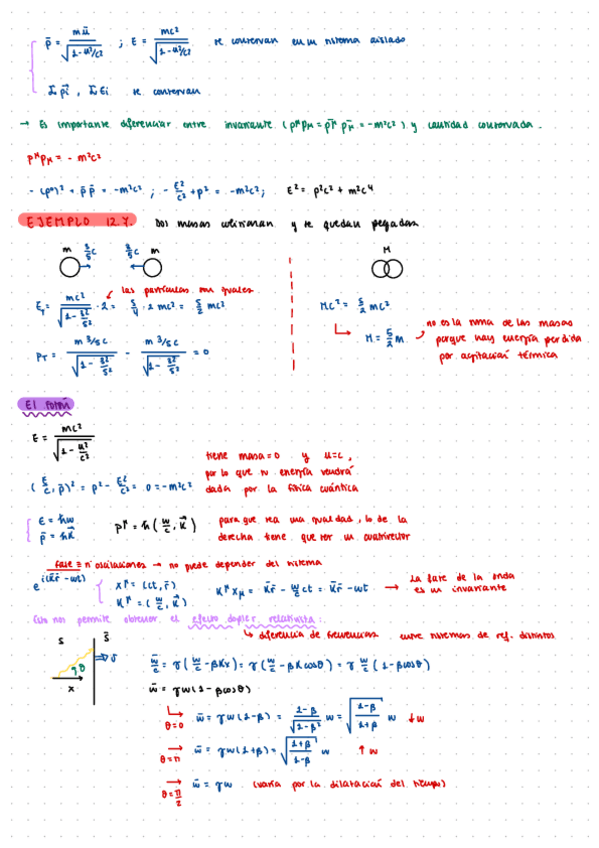 p̄ = mū/√(1-u²/c²) ; E = mc²/√(1-u²/c²) se conservan en un sistema aislado
Σ p̄i , Σ Ei se conservan
→ Es importante diferenciar entre invariante (p^μ p_μ = p̄^μ p̄_μ = -m²c²) y cantidad conservada.
p^μ p_μ = - m²c²
- (p⁰)² + p̄ p̄ = -m²c² ; - E²/c² + p² = -m²c² ; E² = p²c² + m²c⁴
EJEMPLO 12.7. Dos masas colisionan y se quedan pegadas
m 3/5 c 3/5 c m M
las partículas son iguales
E_T = mc²/√(1-3²/5²) · 2 = 5/4 · 2 mc² = 5/2 mc² Mc² = 5/2 mc²
M = 5/2 m
no es la suma de las masas
porque hay energía perdida
por agitación térmica
P_T = m 3/5 c/√(1-3²/5²) - m 3/5 c/√(1-3²/5²) = 0
El fotón
E = mc²/√(1 - u²/c²)
tiene masa = 0 y u=c,
por lo que su energía vendrá
dada por la física cuántica
(E/c, p̄)² = p² - E²/c² = 0 = -m²c²
E = ħw
p̄ = ħk̄
p^μ = ħ (w/c, k̄)
para que sea una igualdad, lo de la
derecha tiene que ser un cuatrivector
fase ≡ nº oscilaciones → no puede depender del sistema
e^i(k̄r̄ - wt)
x^μ = (ct, r̄)
K^μ = (w/c, k̄)
K^μ x_μ = k̄r̄ - w/c ct = k̄r̄ - wt → La fase de la onda
es un invariante
Esto nos permite obtener el efecto doppler relativista:
↳ diferencia de frecuencias entre sistemas de ref. distintos
S S̄
⇒ v
θ
x
w̄/c = γ (w/c - βKx) = γ (w/c - βK cosθ) = γ w/c (1 - βcosθ)
w̄ = γw (1 - βcosθ)
θ=0 w̄ = γw (1-β) = 1-β/√(1-β²) w = √(1-β/1+β) w ↓w
θ=π w̄ = γw (1+β) = √(1+β/1-β) w ↑w
θ=π/2 w̄ = γw (varía por la dilatación del tiempo)